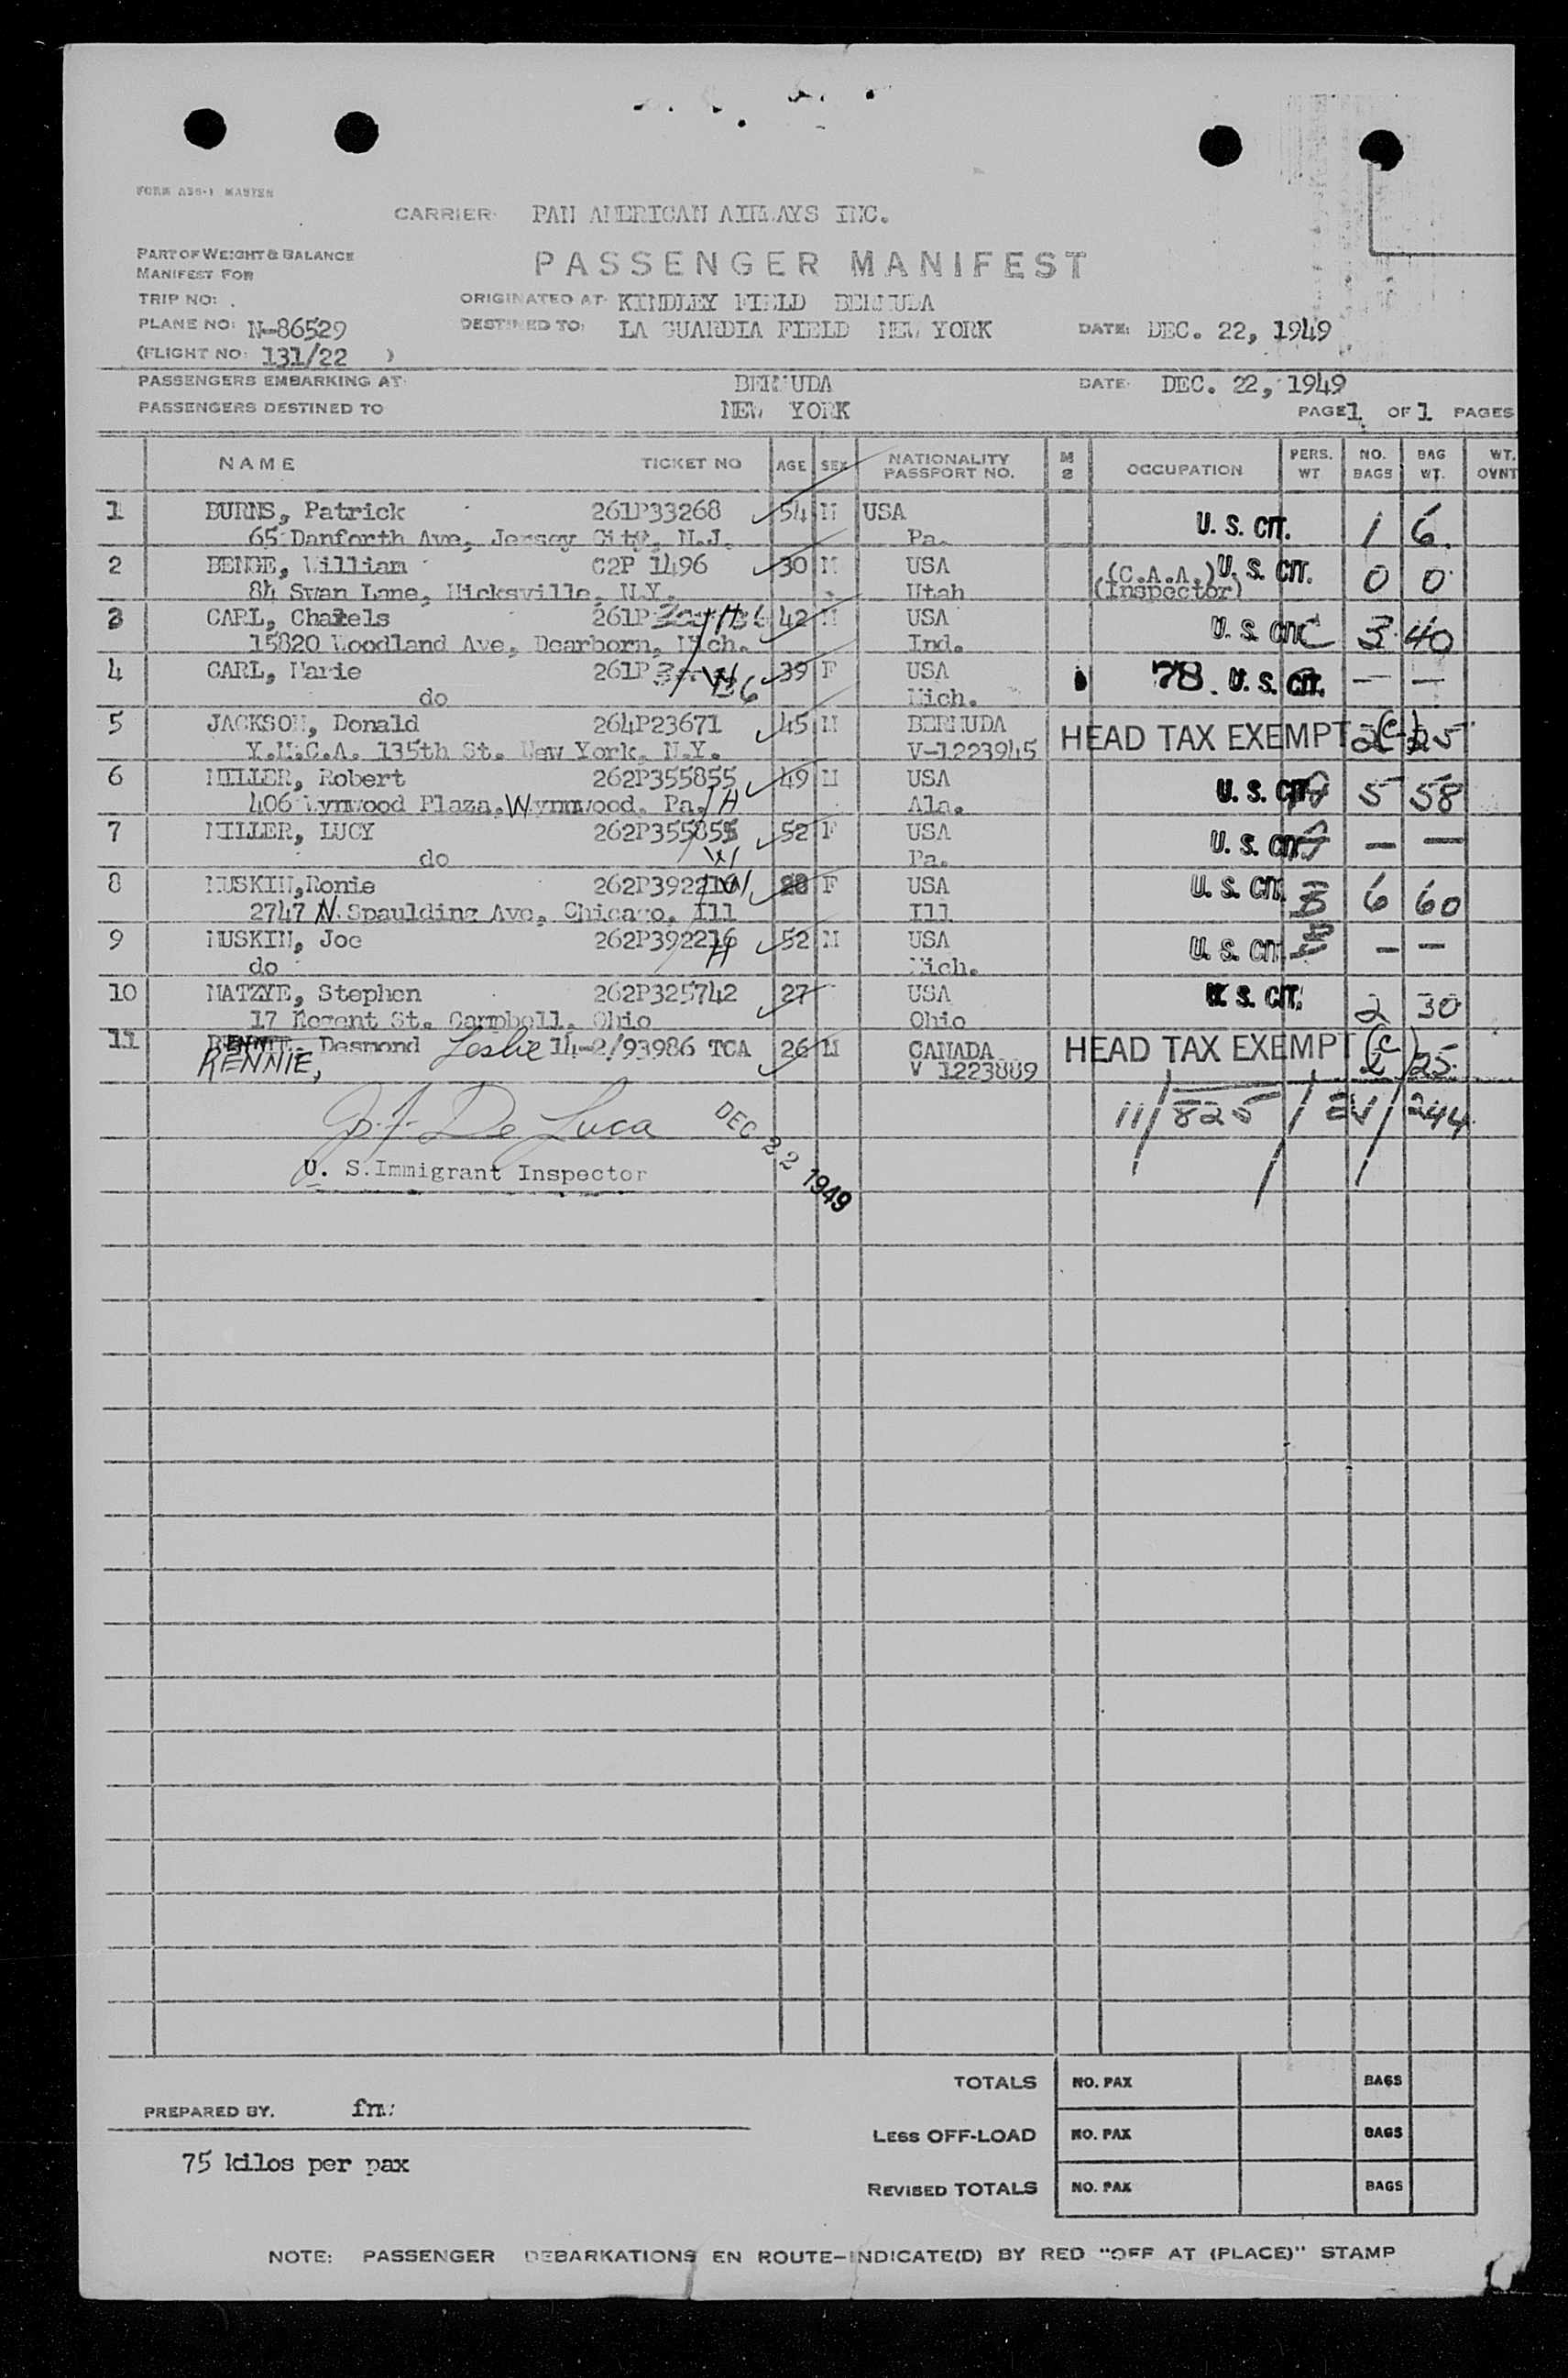 FORM A36-1 MASTER
CARRIER: PAN AMERICAN AIRWAYS INC.
PART OF WEIGHT & BALANCE
MANIFEST FOR
PASSENGER MANIFEST
TRIP NO: .
ORIGINATED AT: KINDLEY FIELD BERMUDA
PLANE NO: N-86529
DESTINED TO: LA GUARDIA FIELD NEW YORK DATE: DEC. 22, 1949
(FLIGHT NO: 131/22 )
PASSENGERS EMBARKING AT: BERMUDA DATE: DEC. 22, 1949
PASSENGERS DESTINED TO NEW YORK PAGE 1 OF 1 PAGES
NAME TICKET NO AGE SEX NATIONALITY PASSPORT NO. M S OCCUPATION PERS. WT NO. BAGS BAG WT. WT. OVNT
1 BURNS, Patrick 261P33268 54 M USA U. S. CIT. 1 6
65 Danforth Ave, Jersey City, N.J. Pa.
2 BENGE, William C2P 1496 30 M USA (C.A.A.) U. S. CIT. 0 0
84 Swan Lane, Hicksville, N.Y. Utah (Inspector)
3 CARL, Charels 261P 42 M USA U. S. CIT. 3 40
15820 Woodland Ave, Dearborn, Mich. Ind.
4 CARL, Marie 261P 39 F USA 78. U. S. CIT. — —
do Mich.
5 JACKSON, Donald 264P23671 45 M BERMUDA HEAD TAX EXEMPT 2 (C) 25
Y.M.C.A. 135th St. New York, N.Y. V-1223945
6 MILLER, Robert 262P355855 49 M USA U. S. CIT. 5 58
406 Wynwood Plaza, Wynnwood, Pa. H Ala.
7 MILLER, LUCY 262P355855 52 F USA U. S. CIT. — —
do W Pa.
8 MUSKIN, Ronie 262P392216 W 28 F USA U. S. CIT. 6 60
2747 N. Spaulding Ave, Chicago, Ill Ill
9 MUSKIN, Joe 262P392216 H 52 M USA U. S. CIT. — —
do Mich.
10 MATZYE, Stephen 262P325742 27 USA U. S. CIT. 2 30
17 Regent St. Campbell, Ohio Ohio
11 Desmond Leslie 14-2/93986 TCA 26 M CANADA HEAD TAX EXEMPT (C) 2 25
RENNIE, V 1223889
11/ 825 / 21 / 244
J. J. De Luca DEC 22 1949
U. S. Immigrant Inspector
TOTALS NO. PAX BAGS
PREPARED BY. fm:
LESS OFF-LOAD NO. PAX BAGS
75 kilos per pax
REVISED TOTALS NO. PAX BAGS
NOTE: PASSENGER DEBARKATIONS EN ROUTE-INDICATE(D) BY RED "OFF AT (PLACE)" STAMP